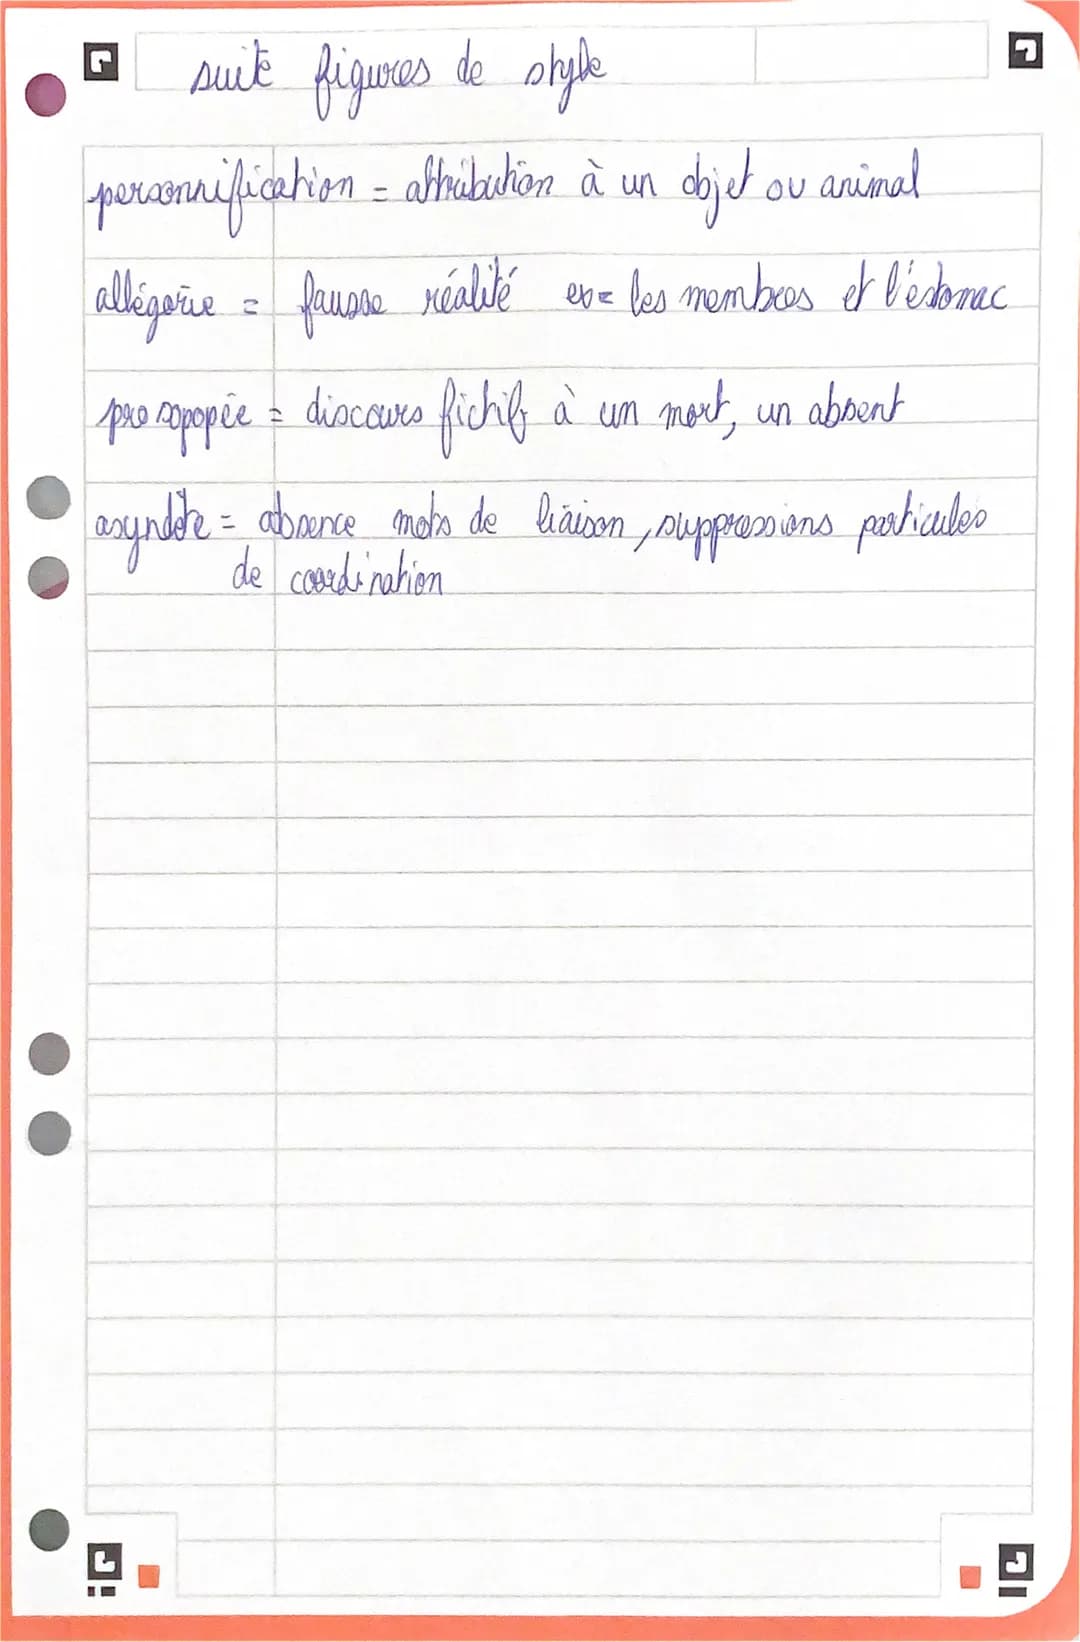 suite figures de style
personnification = attribution à un objet ou animal
allégorie = fausse réalité ex= les membres et l'éstomac
prosopopée = discours fictif à un mort, un absent
asyndète = absence mots de liaison, suppressions particules
de coordination